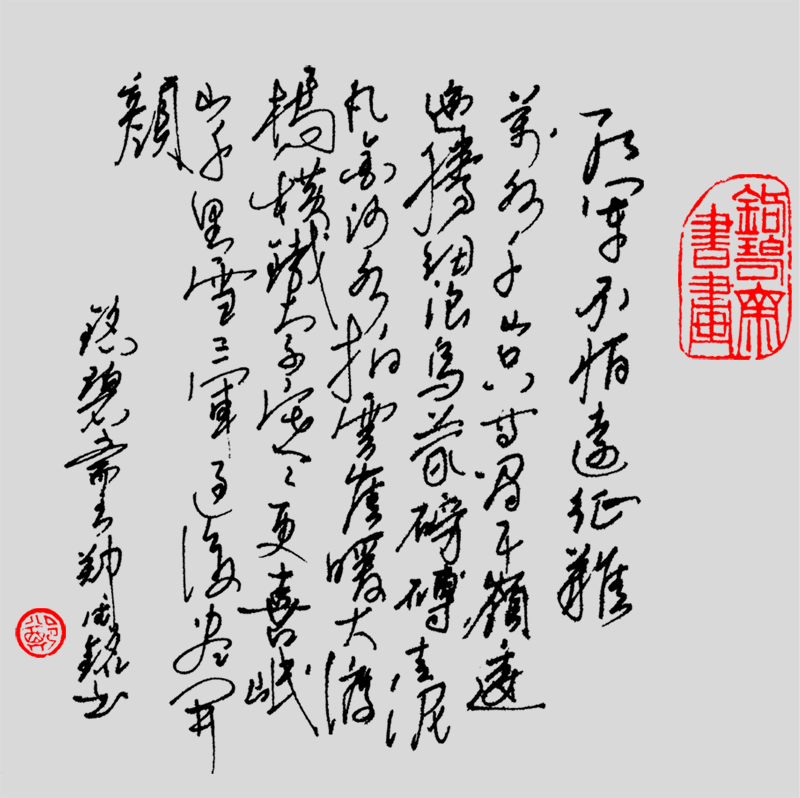 銘碧齋
書畫
紅軍不怕遠征難
萬水千山只等閑五嶺逶
迤騰細浪烏蒙磅礴走泥
丸金沙水拍雲崖暖大渡
橋橫鐵索寒更喜岷
山千里雪三軍過後盡開
顏
銘碧齋主鄭銘书